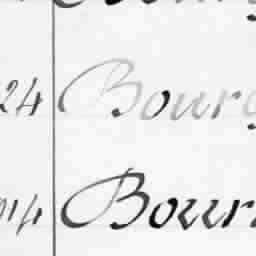 24 Bourg
014 Bourr